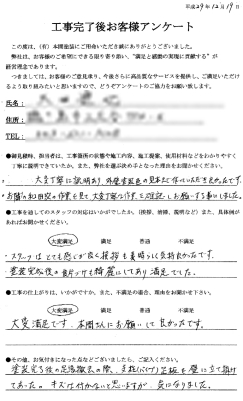 平成29年12月19日
工事完了後お客様アンケート
この度は、(有)本間塗装にご用命いただき誠にありがとうございました。
弊社は、お客様のご希望にできる限り寄り添い、"満足と感動の実現に貢献する"が
経営理念であります。
つきましては、お客様のご意見承り、今後さらに高品質なサービスを提供し、ご満足いただけ
るよう取り組みたいと思いますので、どうぞアンケートのご協力をお願い致します。
氏名:
住所:
TEL:
●御見積時、担当者は、工事箇所の状態や施工内容、施工提案、使用材料などをわかりやすく
丁寧に説明できていたか、また、弊社を選ぶ決め手となった理由をお聞かせください。
・大変丁寧に説明あり、外壁塗装の見本まで作っていただき良かったです。
・お隣の和田製の作業を見て大変丁寧な作業と確認しお願いする事にしました。
●工事を通してのスタッフの対応はいかがでしたか。(挨拶、清掃、説明など)また、具体例が
あればお聞かせください。
大変満足 満足 普通 不満足
・スタッフはとても感じが良く挨拶も素晴らしく気持良かったです。
塗装完成後の食片づけも綺麗にしてあり満足でした。
●工事の仕上がりは、いかがですか、また、不満足の場合、理由をお聞かせ下さい。
大変満足 満足 普通 不満足
大変満足です。本間さんにお願いして良かったです。
●その他、お気付きになった点などございましたら、ご記入ください。
塗装完了後の足場撤去の際、支柱(パイプ)足板を壁に立て掛け
てあったの キズは付かないと思いますが、気になりました。